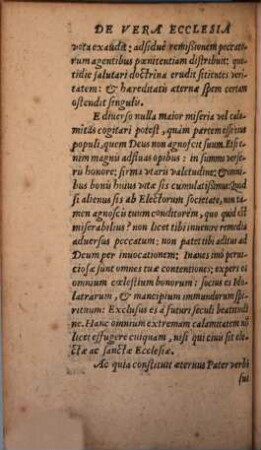 DE VERA ECCLESIA
vota exaudit: adsidue remissionem peccato-
rum agentibus pœnitentiam distribuit: quo-
tidie salutari doctrina erudit sitientes veri-
tatem: & hæreditatis æternæ spem certam
ostendit singulis.
E diverso nulla maior miseria vel cala-
mitas cogitari potest, quàm partem esse eius
populi, quem Deus non agnoscit suum. Etsi e-
nim magnis adfluas opibus: in summo verse-
ris honore: firma utaris valetudine: & om-
nibus bonis huius vitæ sis cumulatissimus: Quod
si alienus sis ab Electorum societate, non ta-
men agnoscis tuum conditorem, quo quid est
miserabilius? non licet tibi invenire remedia
adversus peccatum: non patet tibi aditus ad
Deum per invocationem: Inanes imò perni-
ciosæ sunt omnes tuæ contentiones: expers es
omnium cœlestium bonorum: socius es Ido-
latrarum, & mancipium immundorum spi-
rituum: Exclusus es à futuri seculi beatitudi-
ne. Hanc omnium extremam calamitatem nō
licet effugere cuiquam, nisi qui civis sit ele-
ctæ ac sanctæ Ecclesiæ.
Ac quia constituit æternus Pater verbi
sui